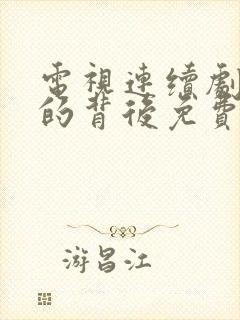 電視連續劇
的背後免費
游昌江